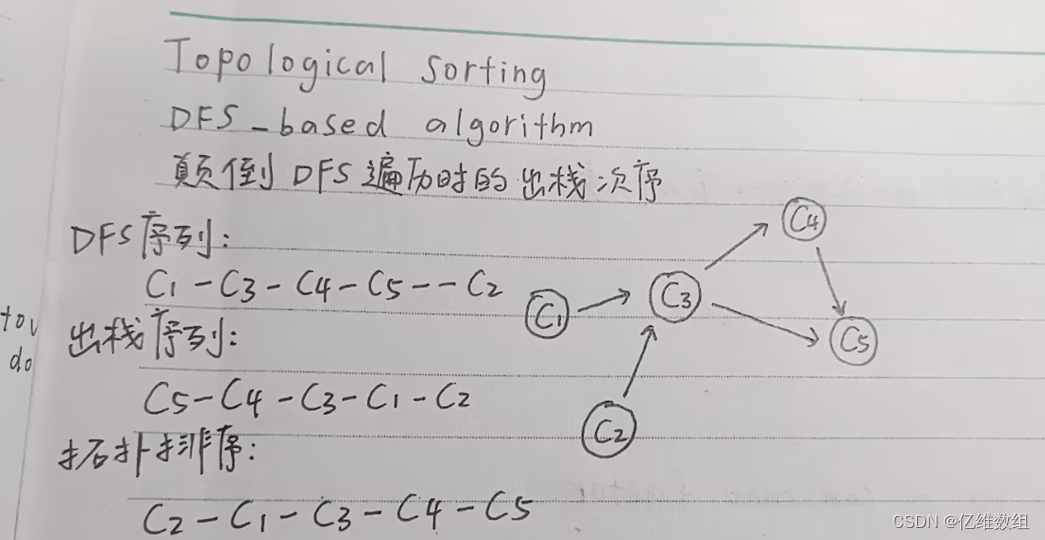 Topological sorting
DFS-based algorithm
颠倒 DFS 遍历时的出栈次序
DFS序列:
C1-C3-C4-C5--C2
出栈序列:
C5-C4-C3-C1-C2
拓扑排序:
C2-C1-C3-C4-C5
C4
C3
C1
C5
C2
do
CSDN @亿维数组